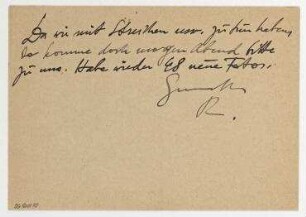 Da wir mit usw. zu tun haben,
so komme doch morgen Abend bitte
zu uns. Habe wieder 48 neue Fotos.
R.